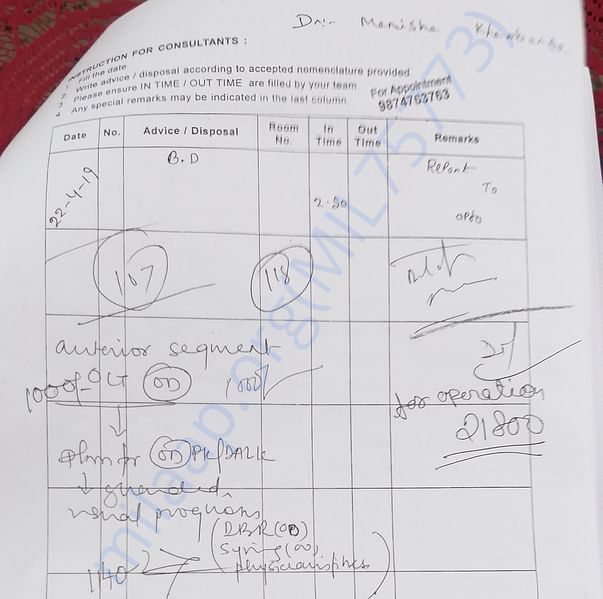 Dr:- Manisha
INSTRUCTION FOR CONSULTANTS :
1 Fill the date
2 Write advice / disposal according to accepted nomenclature provided
3 Please ensure IN TIME / OUT TIME are filled by your team
4 Any special remarks may be indicated in the last column
For Appointment
9874763763
Date No. Advice / Disposal Room No. In Time Out Time Remarks
22-4-19 B.D 2.50 Report
To
opto
107 118
anterior segment
1000/- OCT OD
for operation
21800
Plan for OD PK/DALK
guarded
visual prognosis
1140
milaap.org(MIL75773)